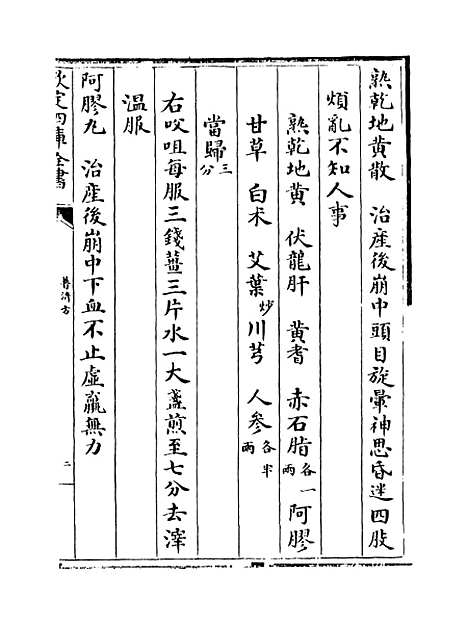 熟乾地黄散　治産後崩中頭目旋暈神思昏迷四肢
煩亂不知人事
熟乾地黄　伏龍肝　黄耆　赤石脂各一兩　阿膠
甘草　白术　艾葉炒　川芎　人參各半兩
當歸三分
右㕮咀每服三錢薑三片水一大盞煎至七分去滓
温服
阿膠丸　治産後崩中下血不止虛羸無力
欽定四庫全書
普濟方
二